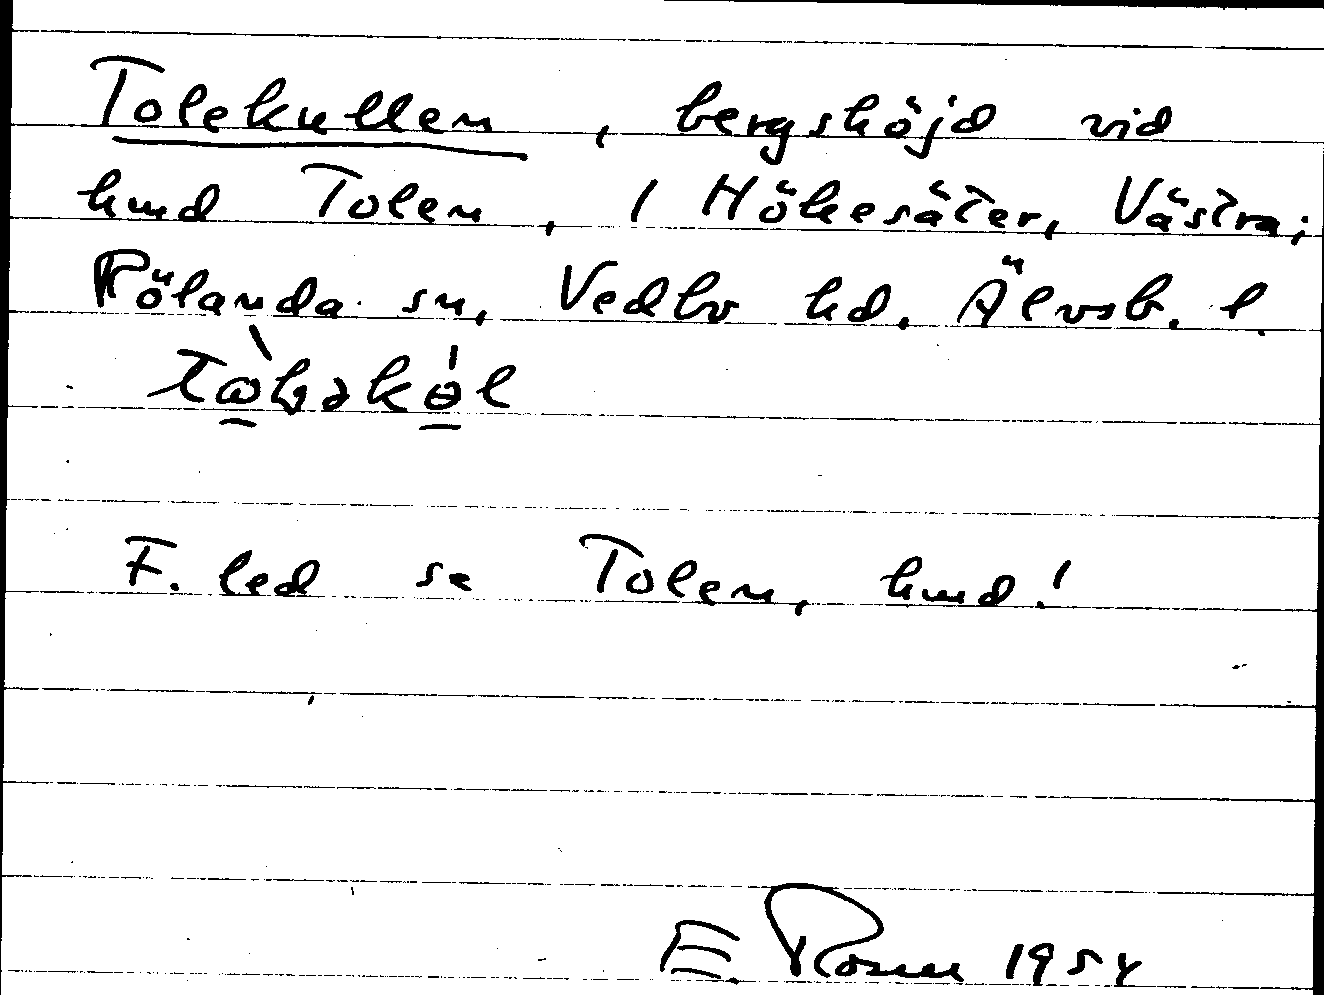 Tolekullen, bergshöjd vid
hmd Tolen, 1 Hökesäter, Västra;
Rölanda sn, Vedbo hd. Älvsb. l.
F. led se Tolen, hmd!
E. Rosen 1954